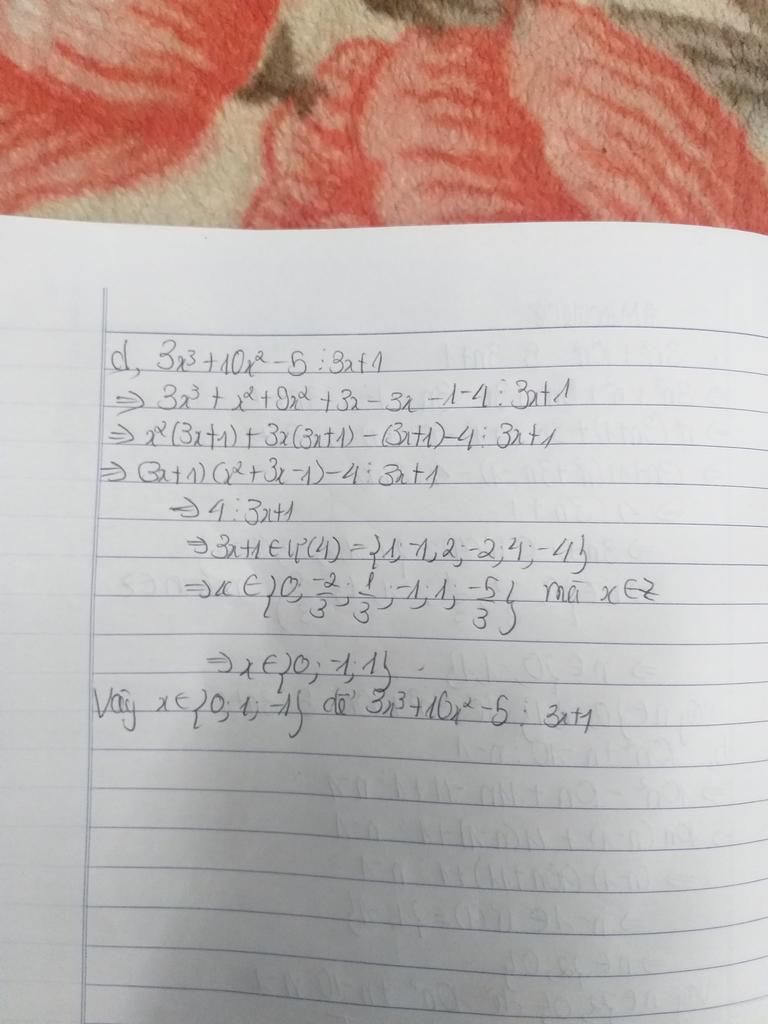 d, 3x³ + 10x² - 5 ⋮ 3x+1
⇒ 3x³ + x² + 9x² + 3x - 3x - 1 - 4 ⋮ 3x+1
⇒ x²(3x+1) + 3x(3x+1) - (3x+1) - 4 ⋮ 3x+1
⇒ (3x+1)(x²+3x-1) - 4 ⋮ 3x+1
⇒ 4 ⋮ 3x+1
⇒ 3x+1 ∈ Ư(4) = {1; -1; 2; -2; 4; -4}
⇒ x ∈ {0; -2/3; 1/3; -1; 1; -5/3} mà x ∈ Z
⇒ x ∈ {0; -1; 1}.
Vậy x ∈ {0; 1; -1} để 3x³ + 10x² - 5 ⋮ 3x+1